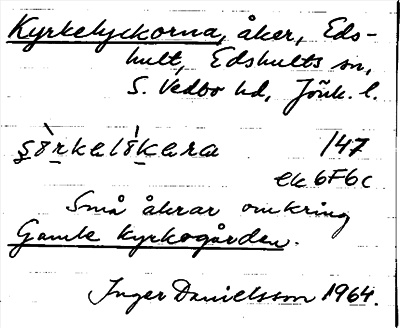 Kyrkelyckorna, åker, Eds-
hult, Edshults sn,
S. Vedbo hd, Jönk. l.
147
ek 6F6c
Små åkrar omkring
Gamle Kyrkogården.
Inger Danielsson 1964.